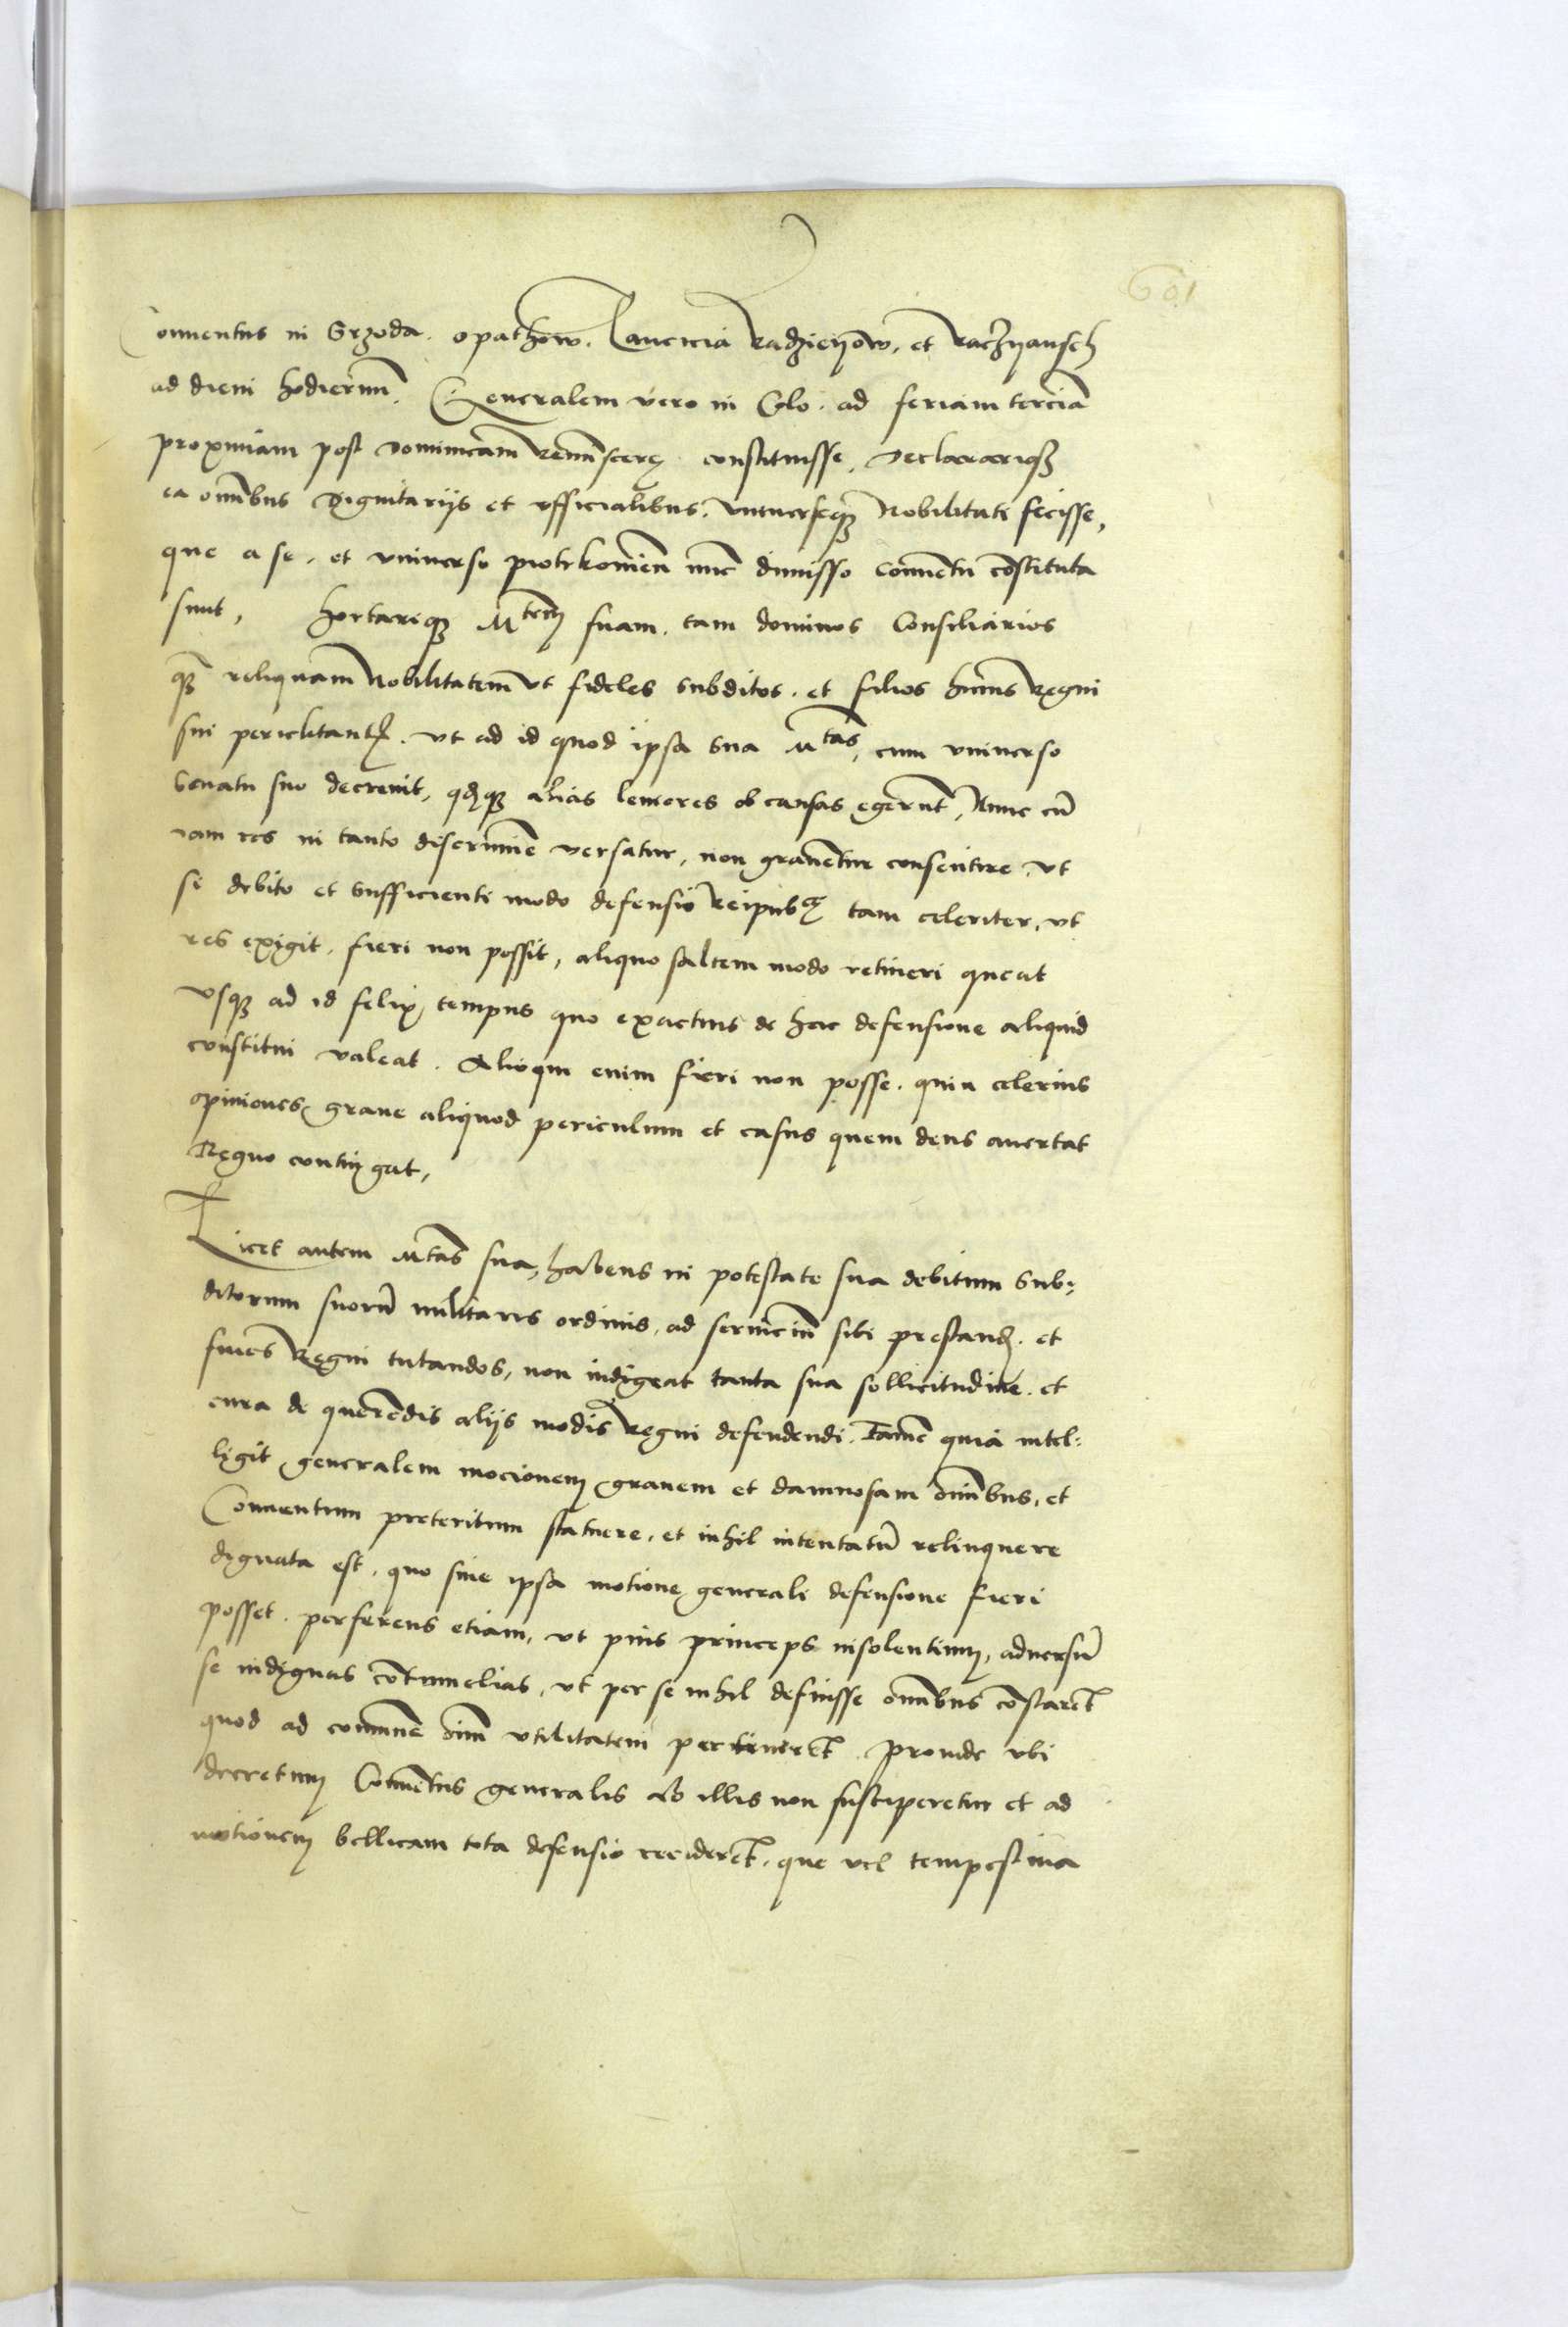 601
Conuentus in Srzoda. opathow. Lancicia Radzieyow. et Raczyansch
ad diem hodiernũ. Generalem vero in Colo. ad feriam terciã
proximam post dominicam Reminiscerẹ constituisse, declararique
ea omnibus dignitarijs et officialibus. vniuerseque Nobilitati fecisse,
que a se. et vniuerso piotrkouien nunc dimisso conuentu cõstituta
sunt, hortarique Mtem suam. tam dominos Consiliarios
quam reliquam Nobilitatem vt fideles subditos. et filios huius Regni
sui periclitantis. vt ad id quod ipsa sua Mtas, cum vniuerso
Senatu suo decreuit, quodque alias leuiores ob causas egerũt, Nunc cũ
iam res in tanto discrimine versatur, non grauentur consentire. vt
si debito et sufficienti modo defensio Reipubce tam celeriter, vt
res exigit. fieri non possit, aliquo saltem modo retineri queat
vsque ad id felix tempus quo exactius de hac defensione aliquid
constitui valeat. Alioqui enim fieri non posse. quin celerius
opiniones graue aliquod periculum et casus quem deus auertat
Regno contingat,
Licet autem Mtas sua, habens in potestate sua debitum sub-
ditorum suorũ militaris ordinis, ad seruiciũ sibi prestand. et
fines Regni tutandos, non indigeat tanta sua sollicitudine. et
cura de querẽdis alijs modis Regni defendendi. Tamẽ quia intel-
ligit generalem mocionem grauem et damnosam oĩnibus, et
Conuentum preteritum statuere. et nihil intentatũ relinquere
dignata est. quo sine ipsa motione generali defensione fieri
posset. perferens etiam, vt pius princeps insolentium, aduersũ
se indignas cõtumelias, vt per se nihil defuisse omnibus cõstaret
quod ad comunẽ oĩm vtilitatem pertineret. proinde vbi
decretum Conuẽtus generalis ab illis non susciperetur et ad
motionem bellicam tota defensio recideret. que vel tempestiua